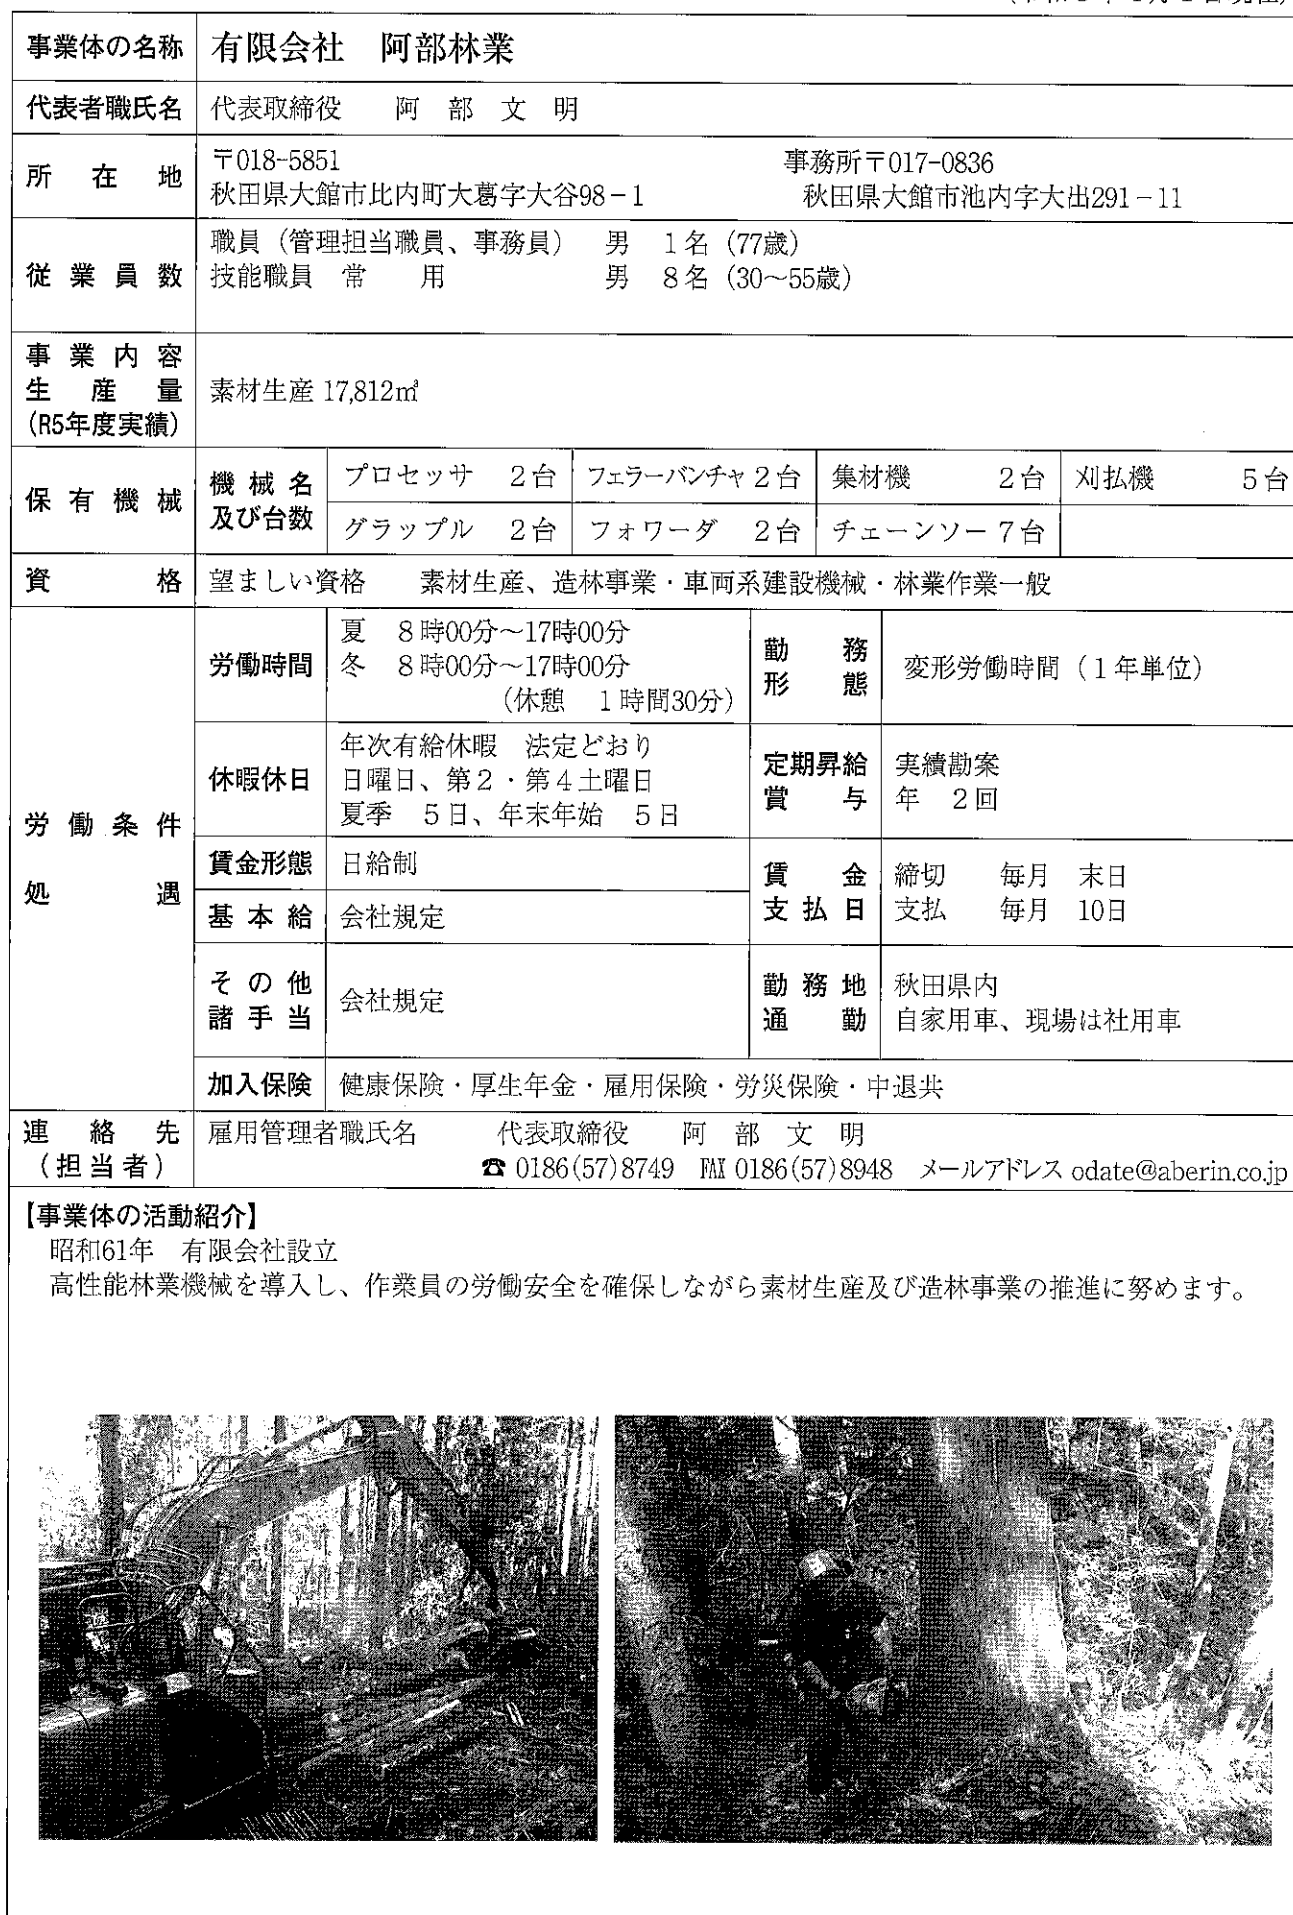 事業体の名称 有限会社 阿部林業
代表者職氏名 代表取締役 阿部文明
所在地 〒018-5851 事務所〒017-0836
秋田県大館市比内町大葛字大谷98-1 秋田県大館市池内字大出291-11
従業員数 職員(管理担当職員、事務員) 男 1名(77歳)
技能職員 常用 男 8名(30~55歳)
事業内容
生産量
(R5年度実績)
素材生産 17,812㎥
保有機械 機械名及び台数
プロセッサ 2台 フェラーバンチャ2台 集材機 2台 刈払機 5台
グラップル 2台 フォワーダ 2台 チェーンソー7台
資格 望ましい資格 素材生産、造林事業・車両系建設機械・林業作業一般
労働条件
処遇
労働時間 夏 8時00分~17時00分
冬 8時00分~17時00分
(休憩 1時間30分)
勤務形態 変形労働時間(1年単位)
休暇休日 年次有給休暇 法定どおり
日曜日、第2・第4土曜日
夏季 5日、年末年始 5日
定期昇給 実績勘案
賞与 年 2回
賃金形態 日給制
基本給 会社規定
賃金 締切 毎月 末日
支払日 支払 毎月 10日
その他
諸手当
会社規定
勤務地 秋田県内
通勤 自家用車、現場は社用車
加入保険 健康保険・厚生年金・雇用保険・労災保険・中退共
連絡先 雇用管理者職氏名 代表取締役 阿部文明
(担当者) ☎0186(57)8749 FAX 0186(57)8948 メールアドレス odate@aberin.co.jp
【事業体の活動紹介】
昭和61年 有限会社設立
高性能林業機械を導入し、作業員の労働安全を確保しながら素材生産及び造林事業の推進に努めます。